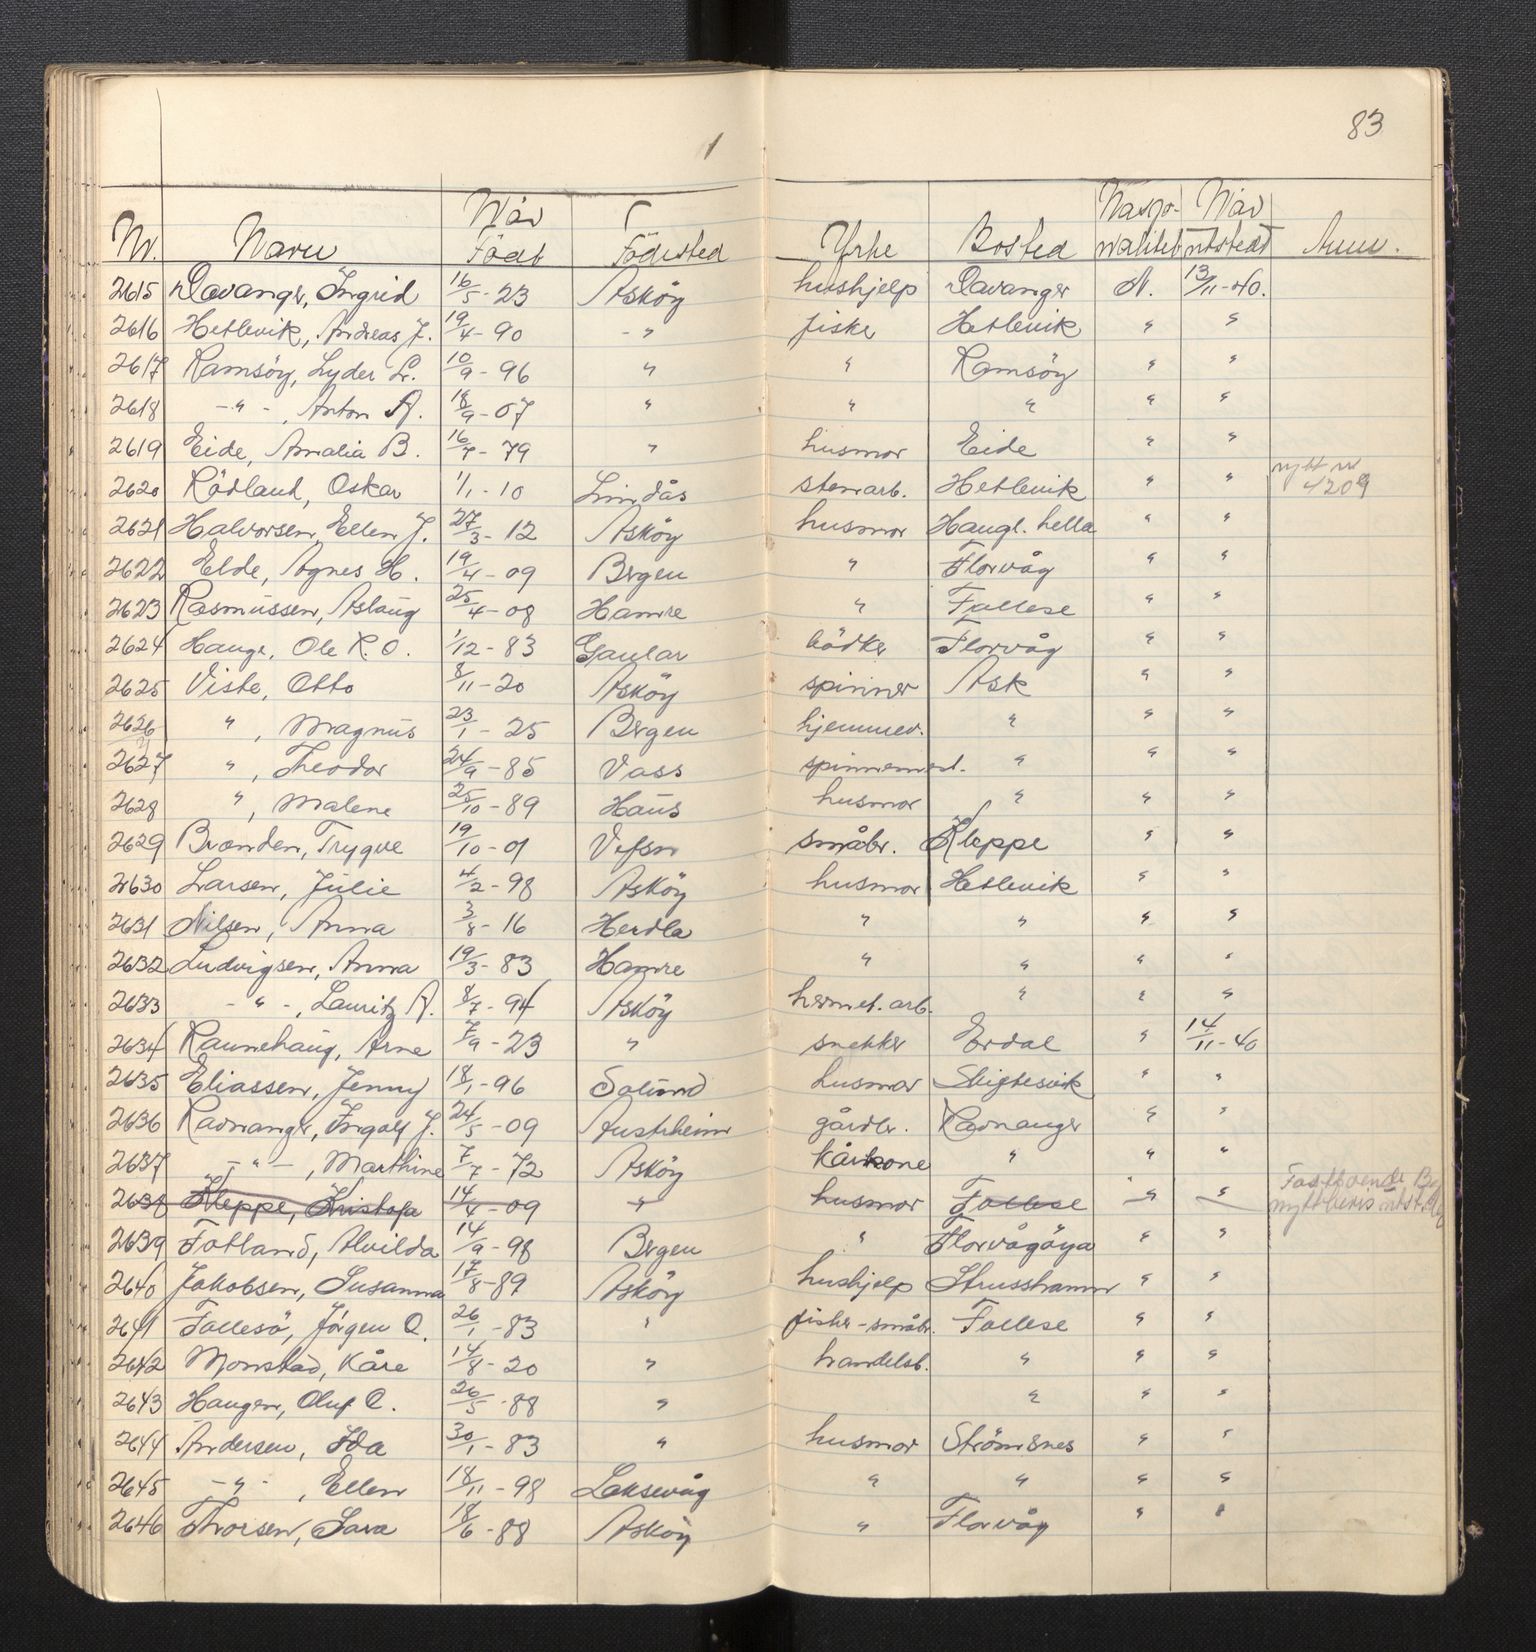 83
Nr. Navn När Födt Födested Yrke Bosted Nasjonalitet När utstedt Anm.
2615 Davanger, Ingrid 16/5-23 Asköy hushjelp Davanger N. 13/11-40.
2616 Hetlevik, Andreas J. 19/4-90 -" fisker Hetlevik " "
2617 Ramsöy, Lyder L. 10/9-96 " " Ramsöy " "
2618 -"-, Anton A. 18/9-07 " " " " "
2619 Eide, Amalia B. 16/7-79 " husmor Eide " "
2620 Rödland, Oskar 1/1-10 Lindås stenarb. Hetlevik " " nytt nr 4209
2621 Halvorsen, Ellen J. 27/3-12 Asköy husmor Haugl. hella " "
2622 Elde, Agnes H. 19/4-09 Bergen " Florvåg " "
2623 Rasmussen, Aslaug 25/4-08 Hamre " Follese " "
2624 Hauge, Ole K. O. 1/12-83 Gaular bödker Florvåg " "
2625 Viste, Otto 8/11-20 Asköy spinner Ask " "
2626 ", Magnus 23/1-25 Bergen hjemmev. " " "
2627 ", Theodor 24/9-85 Voss spinnemest. " " "
2628 ", Malene 25/10-89 Haus husmor " " "
2629 Branden, Trygve 19/10-01 Vefsn småbr. Kleppe " "
2630 Larsen, Julie 4/2-98 Asköy husmor Hetlevik " "
2631 Nilsen, Anna 3/8-16 Herdla " " " "
2632 Ludvigsen, Anna 19/3-83 Hamre " " " "
2633 -"-, Lauritz A. 8/7-94 Asköy hermet. arb. " " "
2634 Raunehaug, Arne 7/9-23 " snekker Erdal " 14/11-40
2635 Eliassen, Jenny 18/1-96 Solund husmor Skiftesvik " "
2636 Ravnanger, Ingolf J. 24/5-09 Austrheim gårdbr. Ravnanger " "
2637 -"-, Marthine 7/7-72 Asköy kårkone " " "
2638 Kleppe, Kristofa 14/4-09 " husmor Follese " " Fastboende nytt bevis utst.
2639 Fotland, Alvilda 14/9-98 Bergen " Florvågöya " "
2640 Jakobsen, Susanna 17/8-89 Asköy hushjelp Strusshamn " "
2641 Follesö, Jörgen O. 26/1-83 " fisker-småbr. Follese " "
2642 Monstad, Kåre 14/8-20 " handelsb. " " "
2643 Haugen, Oluf O. 26/5-88 " " " "
2644 Andersen, Ida 30/1-83 " husmor Strömsnes " "
2645 -"-, Ellen 18/11-98 Laksevåg " " " "
2646 Thorsen, Sara 18/6-88 Asköy " Florvåg " "